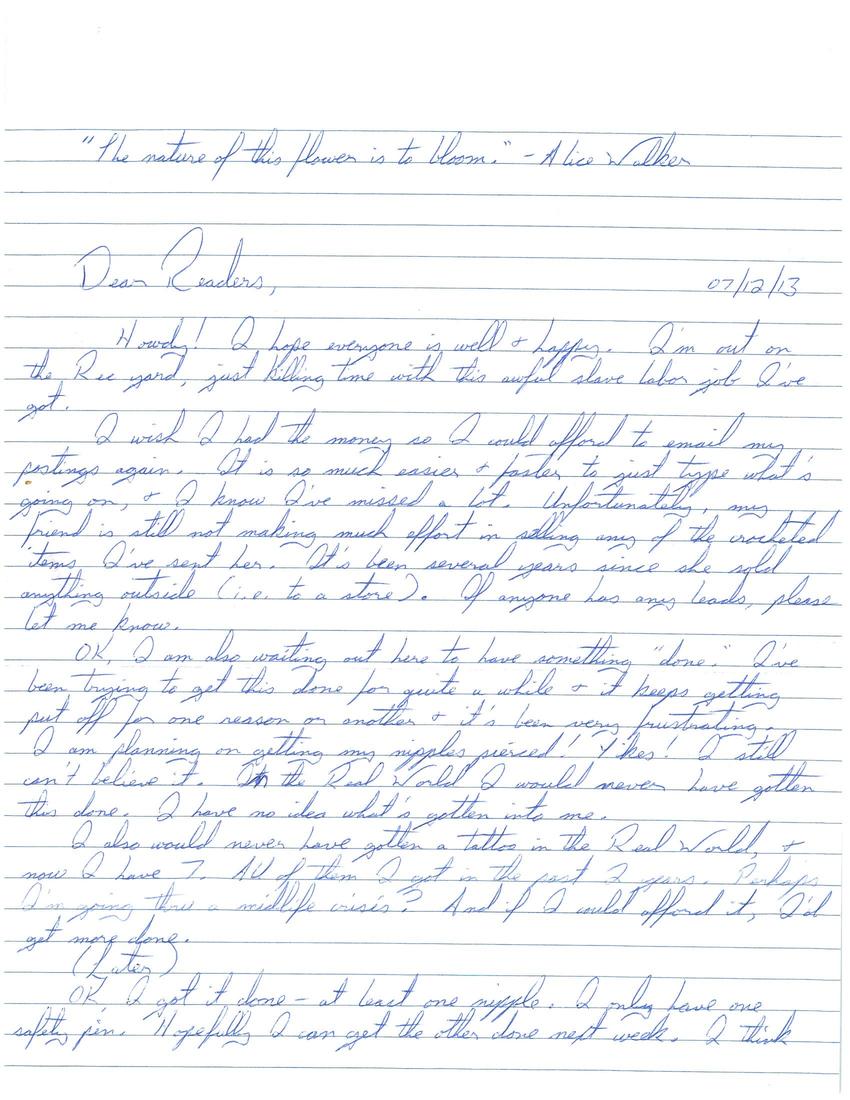 "The nature of this flower is to bloom." - Alice Walker
Dear Readers, 07/12/13
Howdy! I hope everyone is well & happy. I'm out on
the Rec yard, just killing time with this awful slave labor job I've
got.
I wish I had the money so I could afford to email my
postings again. It is so much easier & faster to just type what's
going on, & I know I've missed a lot. Unfortunately, my
friend is still not making much effort in selling any of the crocheted
items I've sent her. It's been several years since she sold
anything outside (i.e. to a store). If anyone has any leads, please
let me know.
OK, I am also waiting out here to have something "done." I've
been trying to get this done for quite a while & it keeps getting
put off for one reason or another & it's been very frustrating.
I am planning on getting my nipples pierced! Yikes! I still
can't believe it. In the Real World I would never have gotten
this done. I have no idea what's gotten into me.
I also would never have gotten a tattoo in the Real World, &
now I have 7. All of them I got in the past 2 years. Perhaps
I'm going thru a midlife crisis? And if I could afford it, I'd
get more done.
(Later)
OK, I got it done - at least one nipple. I only have one
safety pin. Hopefully I can get the other done next week. I think